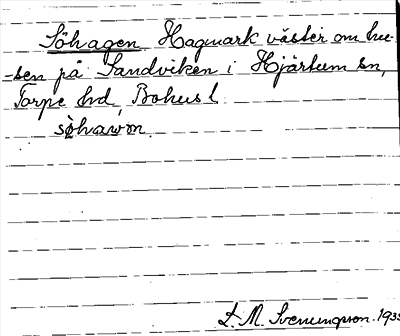 Söhagen Hagmark väster om hu-
-sen på Sandviken i Hjärtum sn,
Torpe hd, Bohus l
L. M. Svenungsson. 193